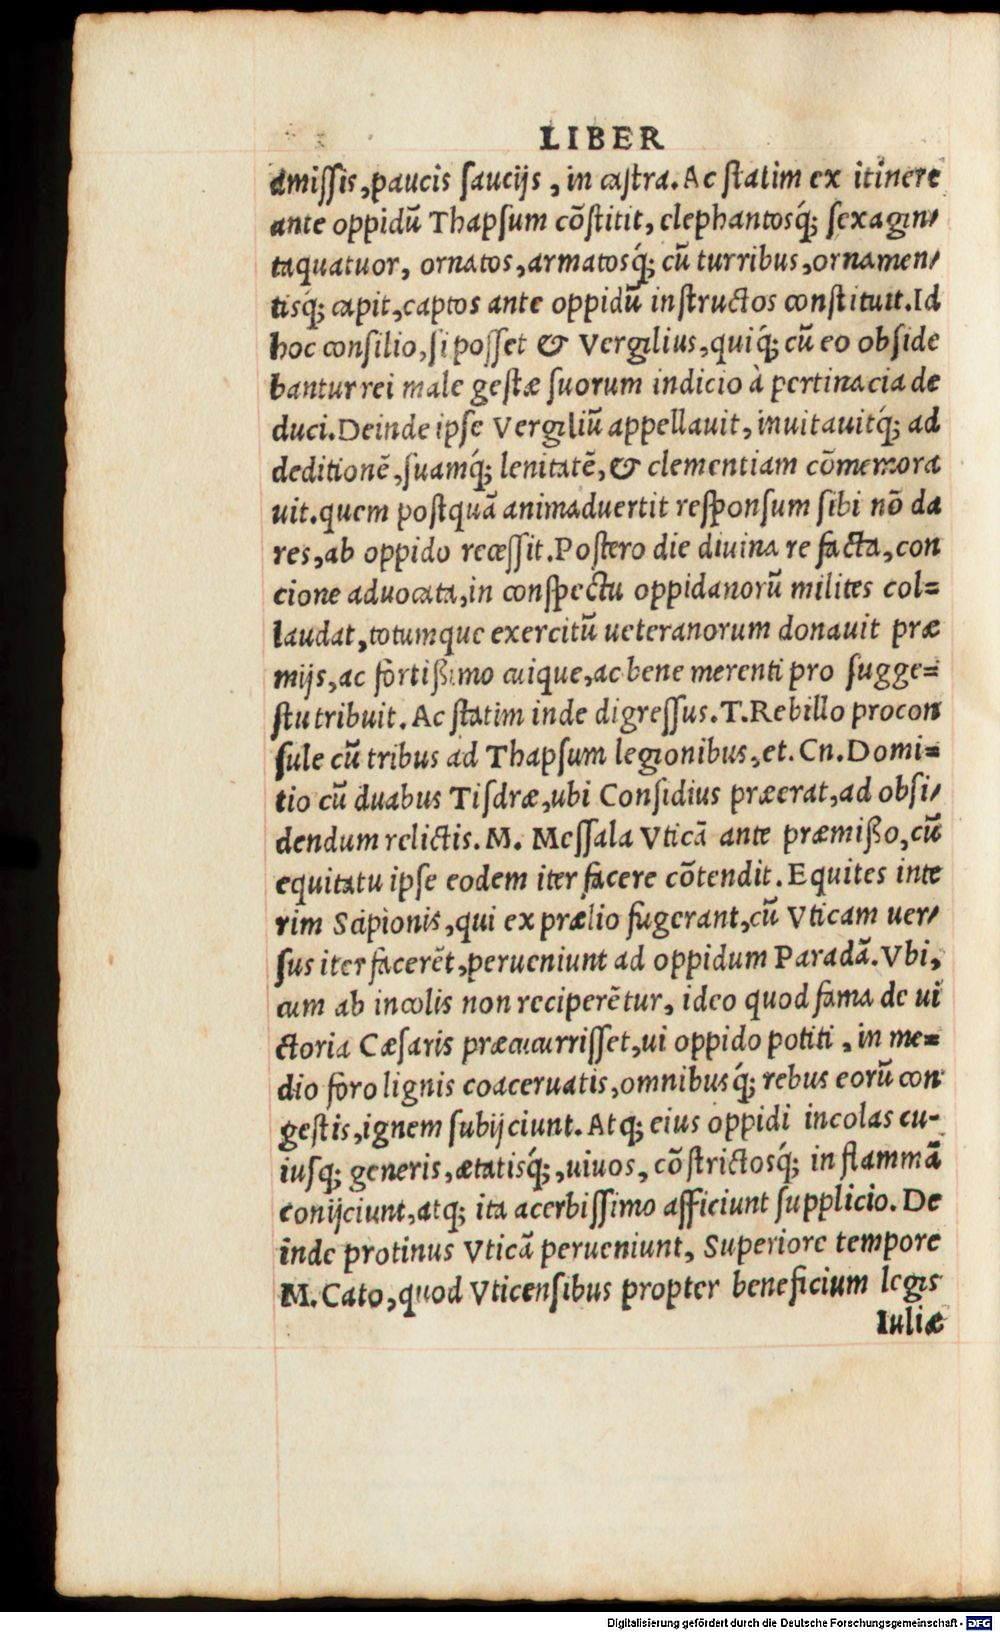 LIBER
amissis, paucis saucijs, in castra. Ac statim ex itinere
ante oppidū Thapsum cōstitit, elephantosq́; sexagin/
taquatuor, ornatos, armatosq́; cū turribus, ornamen/
tisq́; capit, captos ante oppidū instructos constituit. Id
hoc consilio, si posset & Vergilius, quiq́; cū eo obside
bantur rei male gestæ suorum indicio à pertinacia de
duci. Deinde ipse Vergiliū appellauit, inuitauitq́; ad
deditionē, suamq́; lenitatē, & clementiam cōmemora
uit. quem postquā animaduertit responsum sibi nō da
res, ab oppido recessit. Postero die diuina re facta, con
cione aduocata, in conspectu oppidanorū milites col=
laudat, totumque exercitū ueteranorum donauit præ
mijs, ac fortißimo cuique, ac bene merenti pro sugge=
stu tribuit. Ac statim inde digressus. T. Rebillo procon
sule cū tribus ad Thapsum legionibus, et. Cn. Domi=
tio cū duabus Tisdræ, ubi Considius præerat, ad obsi/
dendum relictis. M. Messala Vticā ante præmißo, cū
equitatu ipse eodem iter facere cōtendit. Equites inte
rim Scipionis, qui ex prælio fugerant, cū Vticam uer/
sus iter facerēt, perueniunt ad oppidum Paradā. Vbi,
cum ab incolis non reciperētur, ideo quod fama de ui
ctoria Cæsaris præcucurrisset, ui oppido potiti, in me=
dio foro lignis coaceruatis, omnibusq́; rebus eorū con
gestis, ignem subijciunt. Atq; eius oppidi incolas cu-
iusq; generis, ætatisq́;, uiuos, cōstrictosq́; in flammā
conijciunt, atq; ita acerbissimo afficiunt supplicio. De
inde protinus Vticā perueniunt, Superiore tempore
M. Cato, quod Vticensibus propter beneficium legis
Iuliæ
Digitalisierung gefördert durch die Deutsche Forschungsgemeinschaft - DFG